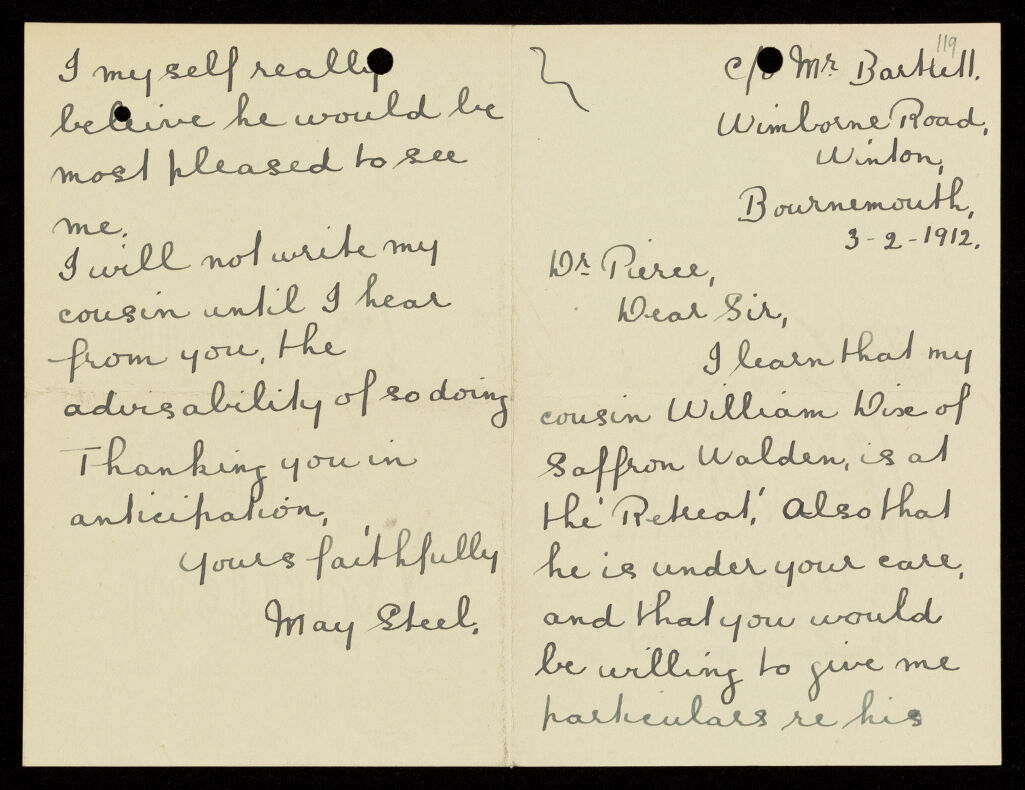 119
c/o Mr. Bartlett.
Wimborne Road,
Winton,
Bournemouth,
3-2-1912.
Dr. Pierce,
Dear Sir,
I learn that my
cousin William Dix of
Saffron Walden, is at
the 'Retreat,' Also that
he is under your care,
and that you would
be willing to give me
particulars re his
I myself really
beleive he would be
most pleased to see
me.
I will not write my
cousin until I hear
from you, the
advisability of so doing
Thanking you in
anticipation,
Yours faithfully
May Steel.